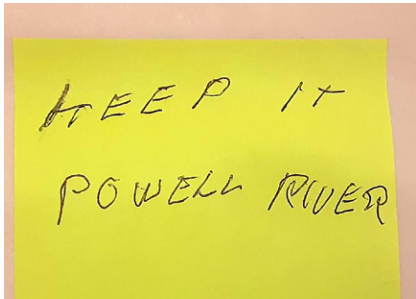 KEEP IT
POWELL RIVER